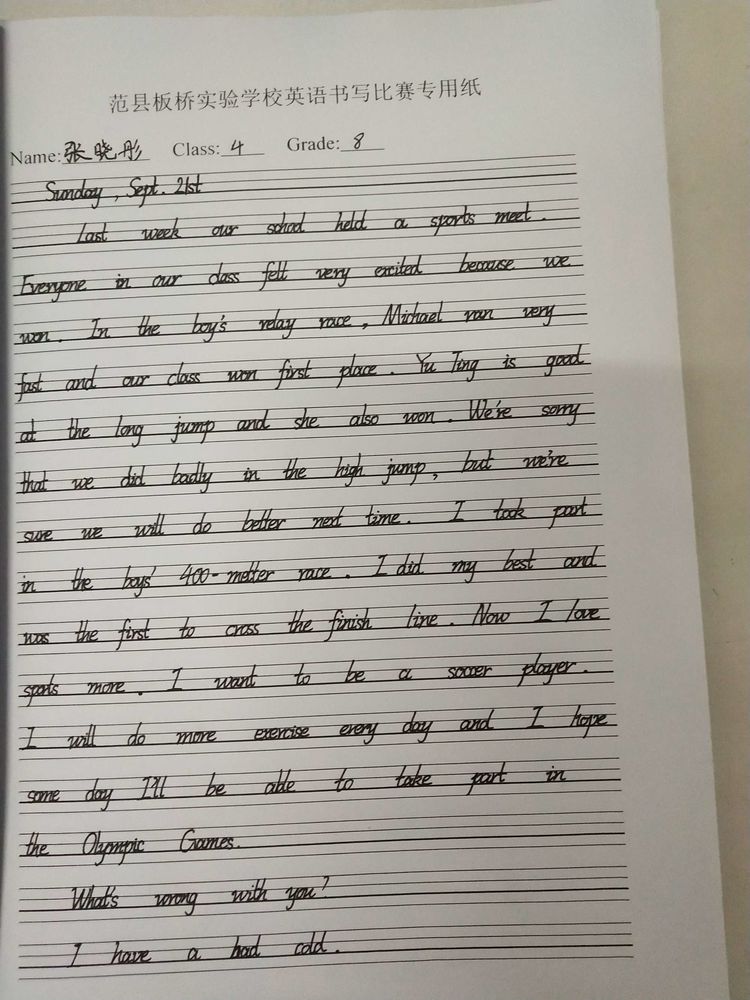 范县板桥实验学校英语书写比赛专用纸
Name: 张晓彤 Class: 4 Grade: 8
Sunday, Sept. 21st
Last week our school held a sports meet.
Everyone in our class felt very excited because we
won. In the boy's relay race, Michael ran very
fast and our class won first place. Yu Ting is good
at the long jump and she also won. We're sorry
that we did badly in the high jump, but we're
sure we will do better next time. I took part
in the boys' 400-metter race. I did my best and
was the first to cross the finish line. Now I love
sports more. I want to be a soccer player.
I will do more exercise every day and I hope
some day I'll be able to take part in
the Olympic Games.
What's wrong with you?
I have a bad cold.